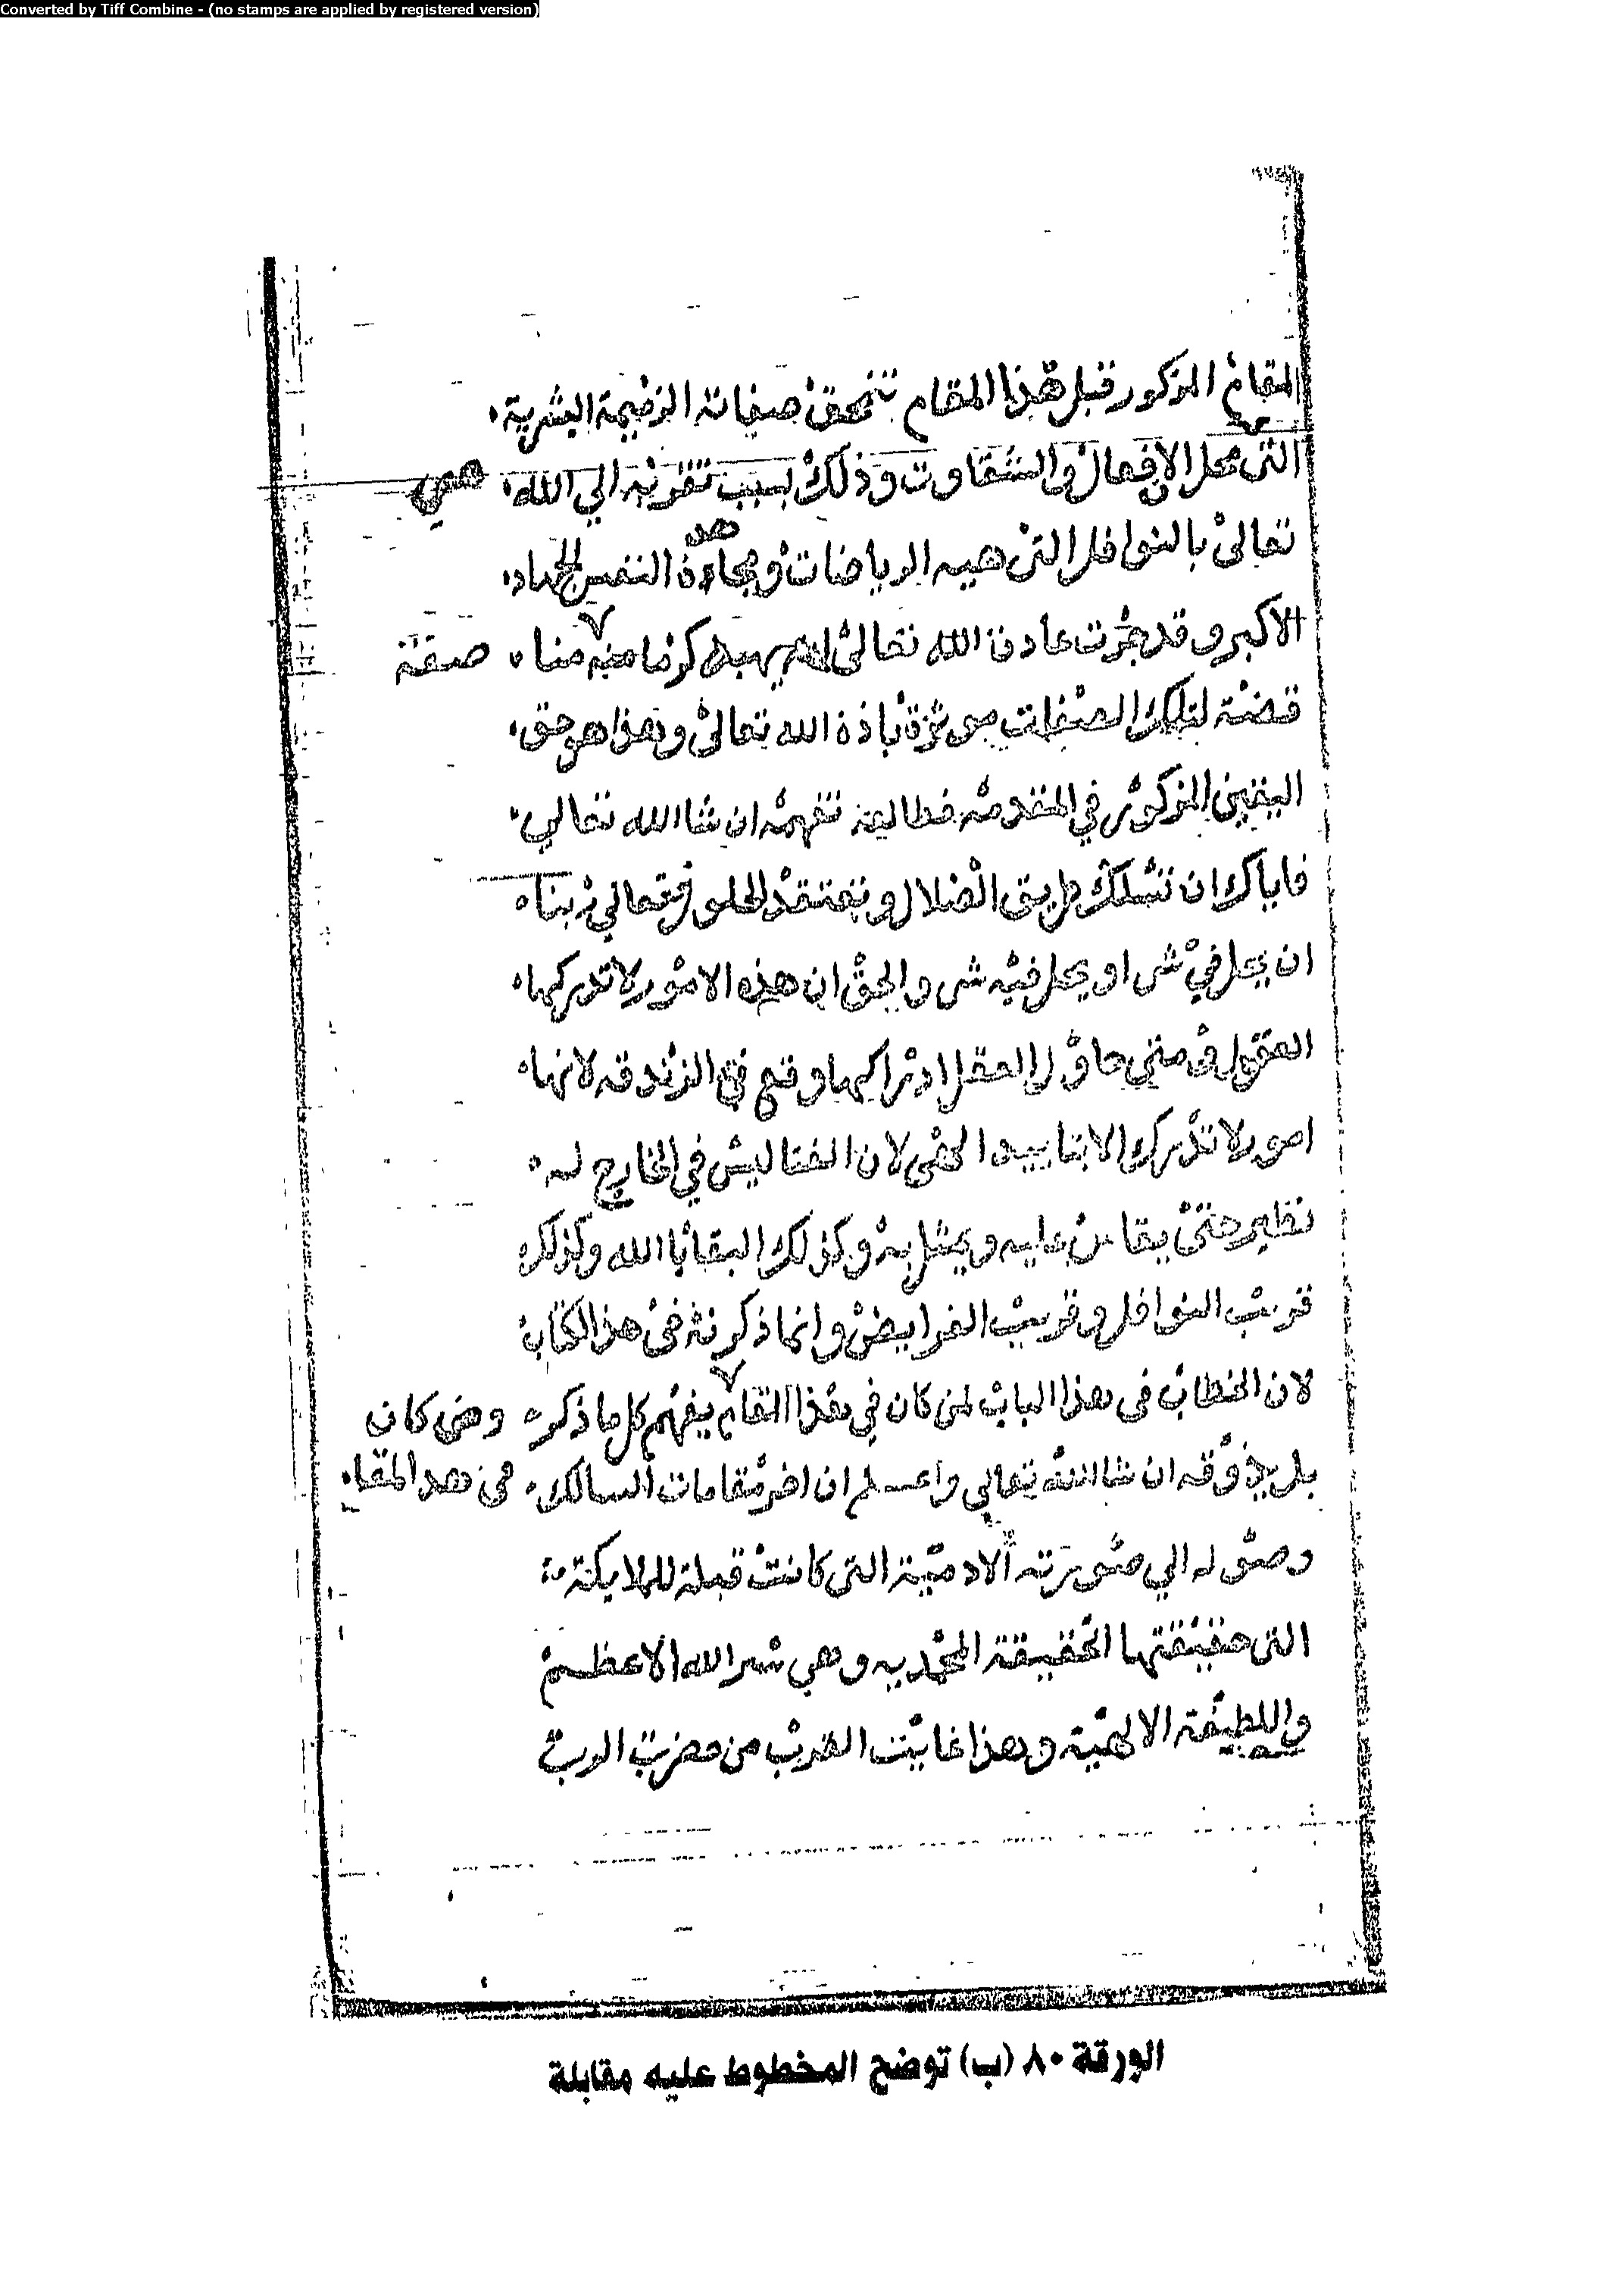 Converted by Tiff Combine - (no stamps are applied by registered version)
المقام المذكور قبل هذا المقام تنمحق صفاته الذميمة البشرية
التى محل الافعال والشقاوت وذلك بسبب تقربه الي الله هي
تعالى بالنوافل التى هيه الرياضات ومجاهدة النفس الجهاد
الاكبر و قد جرت عادت الله تعالى يهبه كرما منه منا صفة
لتلك الصفات باذه الله تعالى وهذا هو حق
اليقين المذكور في المقدمه فطالعه تفهمه ان شا الله تعالي
فاياك ان تسلك طريق الضلال و تعتقد الحلو تعالي ربنا
ان يحل في شى او يحل فيه شى والحق ان هذه الامور لا تدركها
العقول و متى حاول العقل ادراكها وقع في الزندقه لانها
امور لا تدرك الا بتاييد الهى لان الفنا ليس في الخارج له
نظير حتى يقاس عليه و يمثل به وكذلك البقا با الله وكذلك
قرب النوافل و قرب الفرايض و انما ذكرته في هذا الكتاب
لان الخطاب في هذا الباب لمن كان في هذا المقام يفهم كل ما ذكر ومن كان
بل يذوقه ان شا الله تعالي واعلم ان اخر مقامات السالك في هد المقا
وصوله الي صورته الادمية التى كانت قبلة للملايكة
التى حقيقتها الحقيقة المحمديه وهي سر الله الاعظم
واللطيفة الالهية وهذا غايت القرب من حضرت الرب
الورقة ٨٠ (ب) توضح المخطوط عليه مقابلة